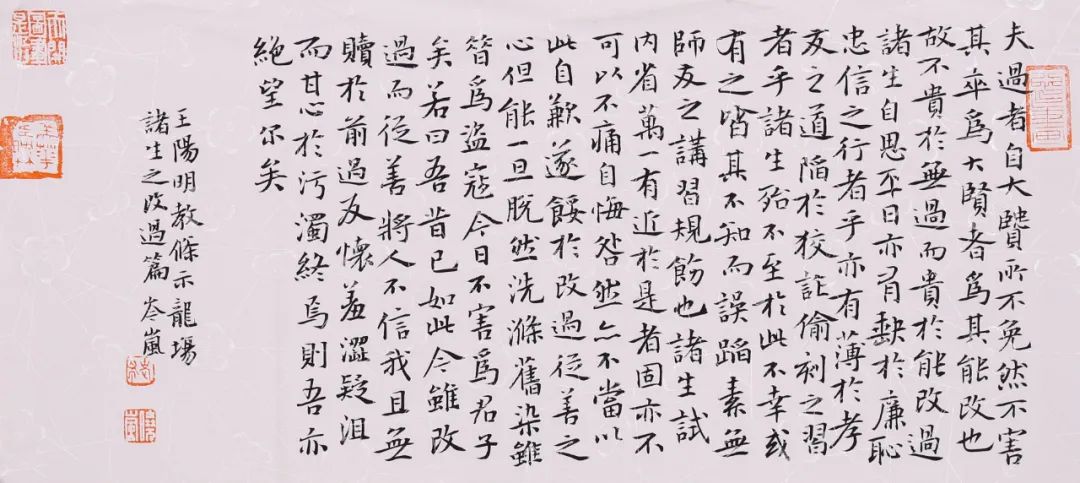 夫過者自大賢所不免然不害
其卒爲大賢者爲其能改也
故不貴於無過而貴於能改過
諸生自思平日亦有缺於廉恥
忠信之行者乎亦有薄於孝
友之道陷於狡詐偷刻之習
者乎諸生殆不至於此不幸或
有之皆其不知而誤蹈素無
師友之講習規飭也諸生試
内省萬一有近於是者固亦不
可以不痛自悔咎然亦不當以
此自歉遂餒於改過從善之
心但能一旦脫然洗滌舊染雖
昔爲盜寇今日不害爲君子
矣若曰吾昔已如此今雖改
過而從善將人不信我且無
贖於前過反懷羞澀疑沮
而甘心於污濁終焉則吾亦
絕望尔矣
王陽明教條示龍場
諸生之改過篇 岑嵐